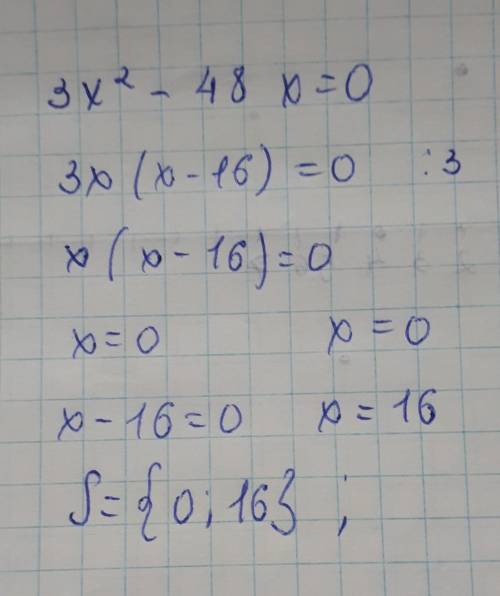 3x² - 48 x = 0
3x (x - 16) = 0 :3
x (x - 16) = 0
x = 0 x = 0
x - 16 = 0 x = 16
S = {0; 16} ;